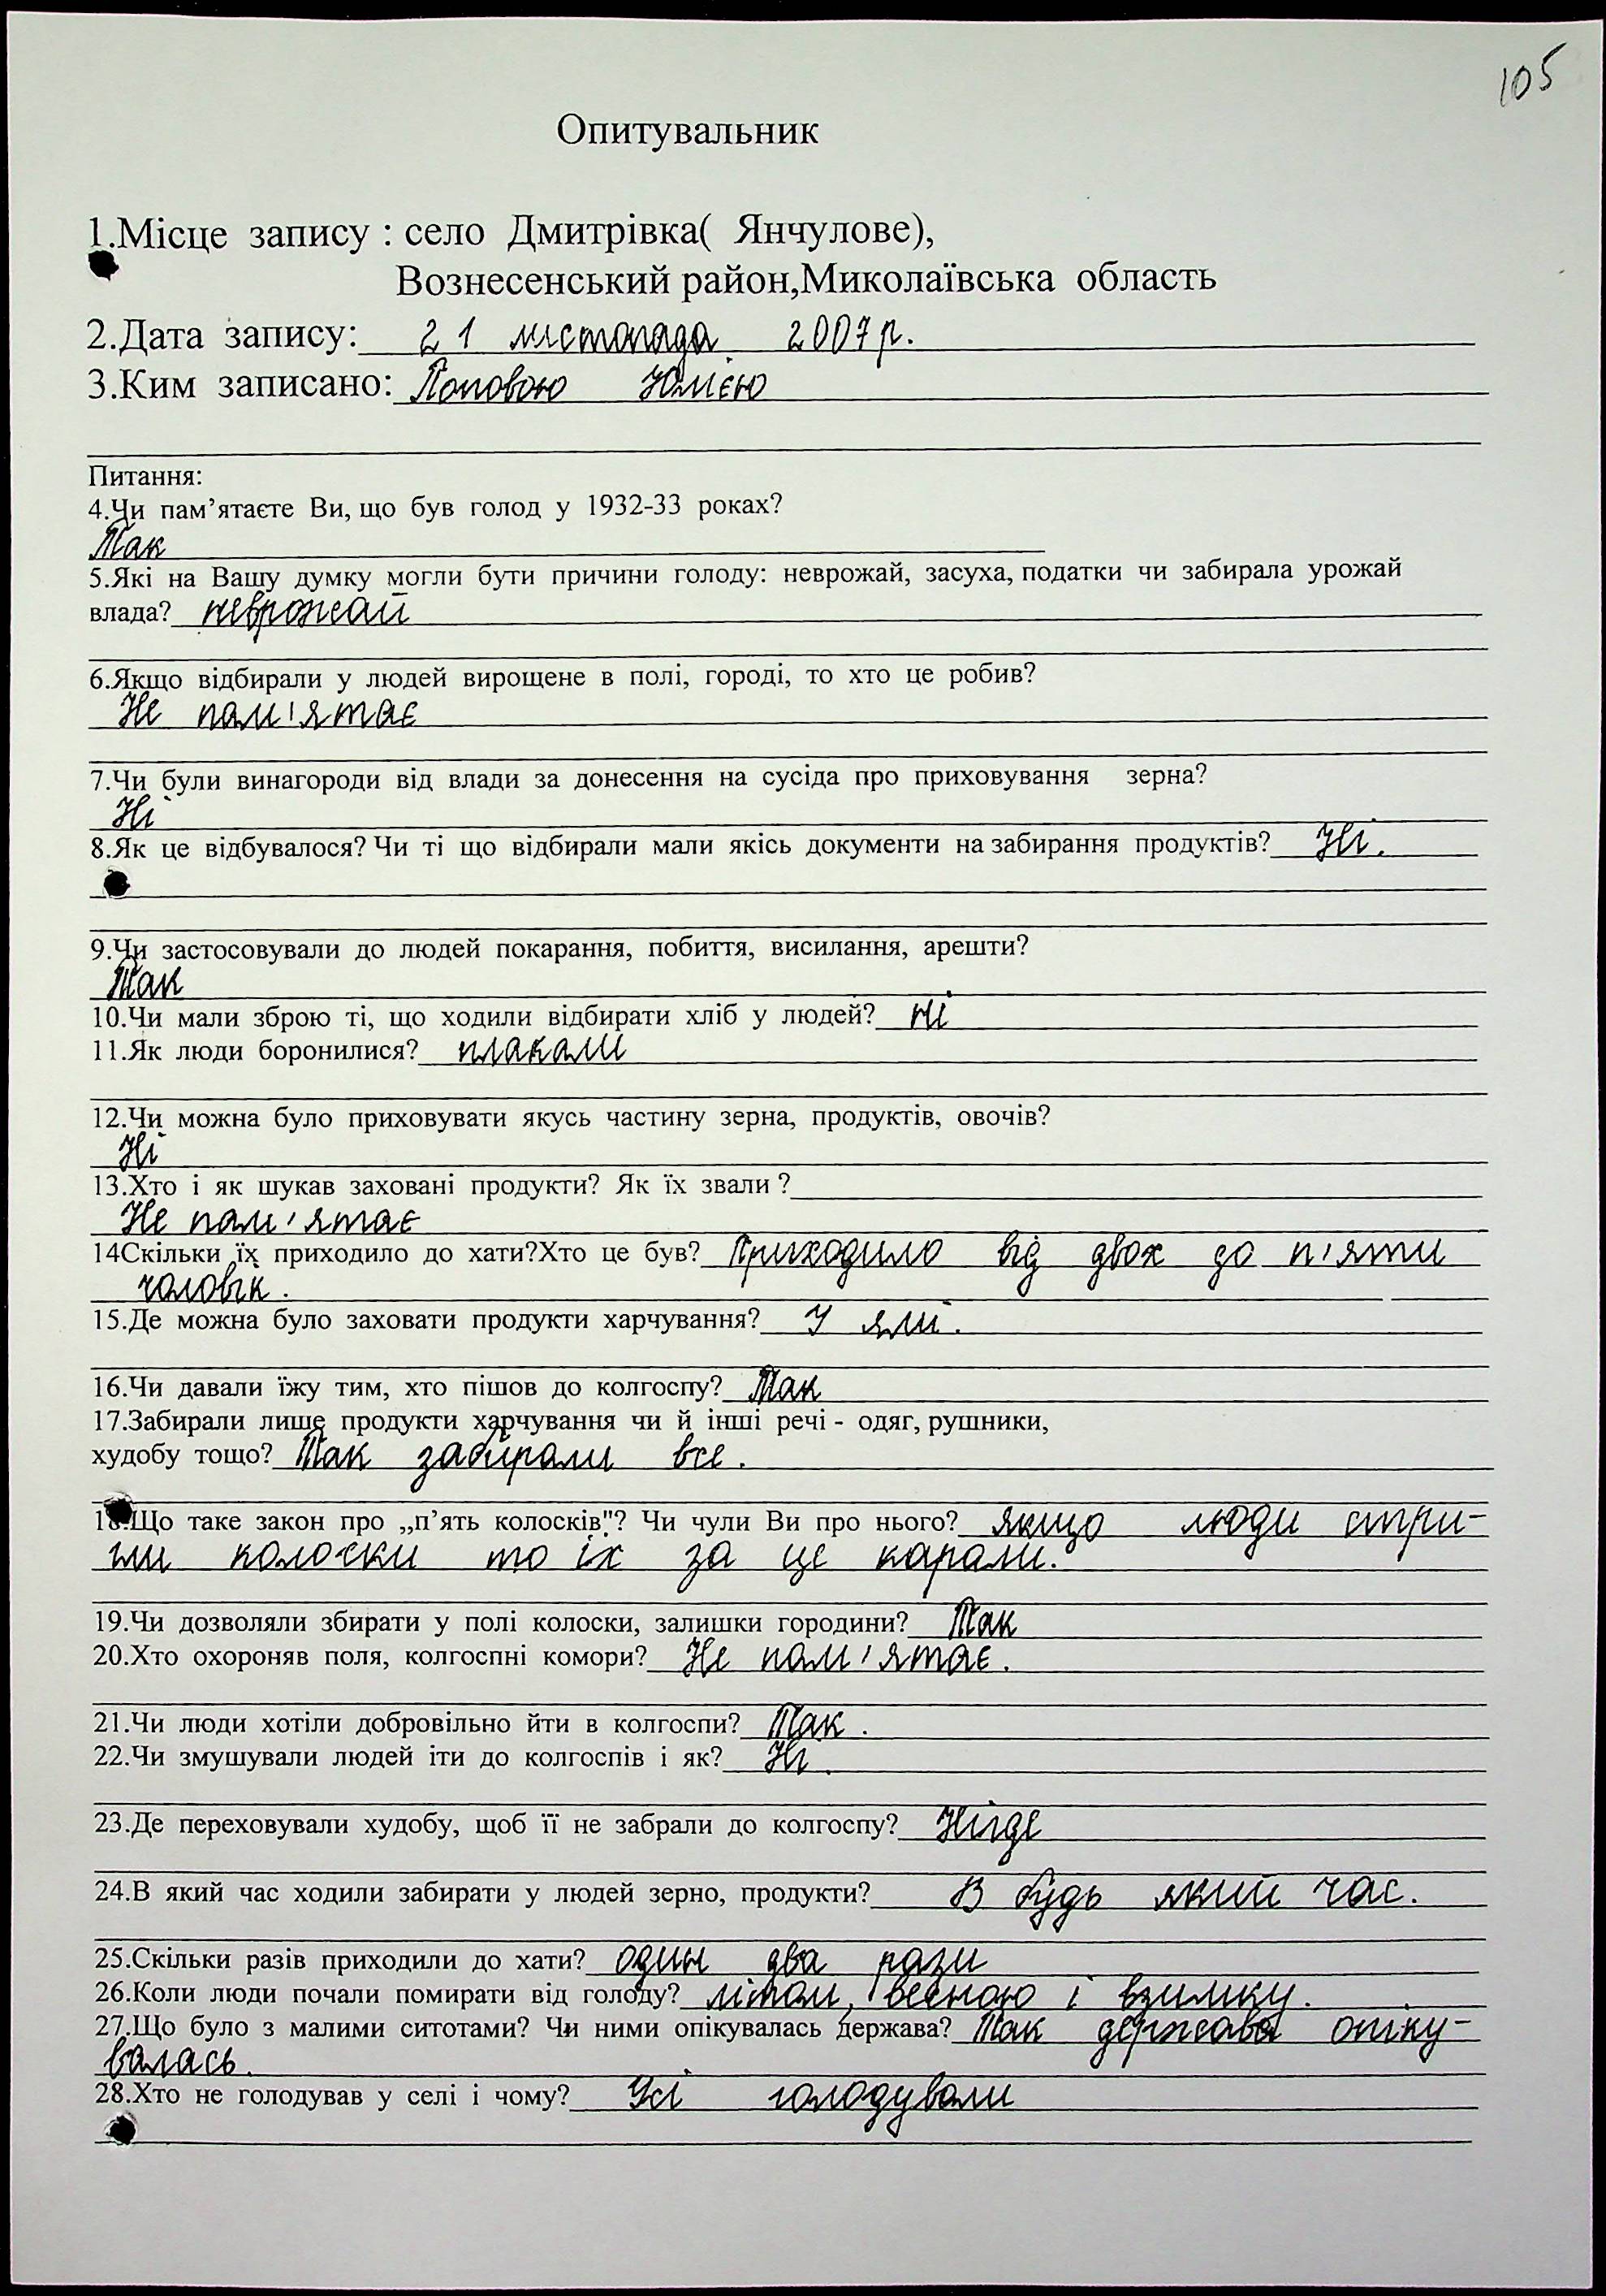 105
Опитувальник
1.Місце запису : село Дмитрівка( Янчулове),
Вознесенський район,Миколаївська область
2.Дата запису: 21 листопада 2007р.
3.Ким записано: Поповою Юлією
Питання:
4.Чи пам’ятаєте Ви, що був голод у 1932-33 роках?
Так
5.Які на Вашу думку могли бути причини голоду: неврожай, засуха, податки чи забирала урожай
влада? неврожай
6.Якщо відбирали у людей вирощене в полі, городі, то хто це робив?
Не пам'ятає
7.Чи були винагороди від влади за донесення на сусіда про приховування зерна?
Ні
8.Як це відбувалося? Чи ті що відбирали мали якісь документи на забирання продуктів? Ні.
9.Чи застосовували до людей покарання, побиття, висилання, арешти?
Так
10.Чи мали зброю ті, що ходили відбирати хліб у людей? ні
11.Як люди боронилися? плакали
12.Чи можна було приховувати якусь частину зерна, продуктів, овочів?
Ні
13.Хто і як шукав заховані продукти? Як їх звали ?
Не пам'ятає
14Скільки їх приходило до хати?Хто це був? Приходило від двох до п'яти
чоловік.
15.Де можна було заховати продукти харчування? У ямі.
16.Чи давали їжу тим, хто пішов до колгоспу? Так
17.Забирали лише продукти харчування чи й інші речі - одяг, рушники,
худобу тощо? Так забирали все.
18.Що таке закон про „п’ять колосків"? Чи чули Ви про нього? якщо люди стри-
гли колоски то їх за це карали.
19.Чи дозволяли збирати у полі колоски, залишки городини? Так
20.Хто охороняв поля, колгоспні комори? Не пам'ятає.
21.Чи люди хотіли добровільно йти в колгоспи? Так.
22.Чи змушували людей іти до колгоспів і як? Ні.
23.Де переховували худобу, щоб її не забрали до колгоспу? Нігде
24.В який час ходили забирати у людей зерно, продукти? В будь який час.
25.Скільки разів приходили до хати? один два рази
26.Коли люди почали помирати від голоду? літом, весною і взимку.
27.Що було з малими ситотами? Чи ними опікувалась держава? Так держава опіку-
валась.
28.Хто не голодував у селі і чому? Усі голодували